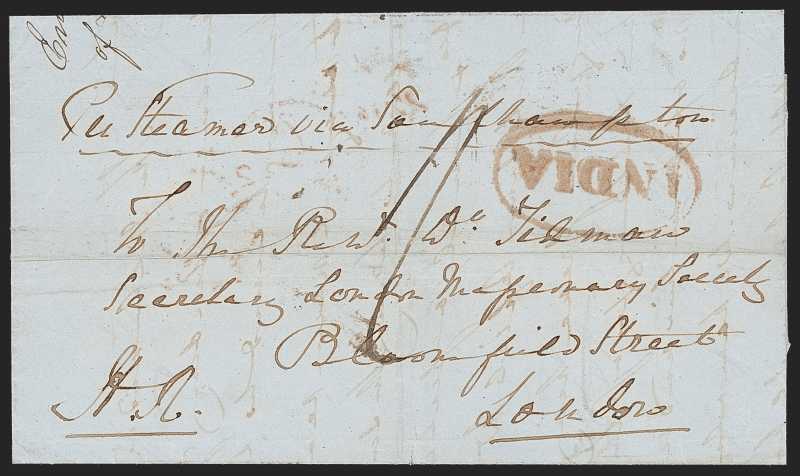 of
Per Steamer via Southampton
INDIA
To The Revd. Dr Tidman
Secretary London Missionary Society
Bloomfield Street
H. R.
London